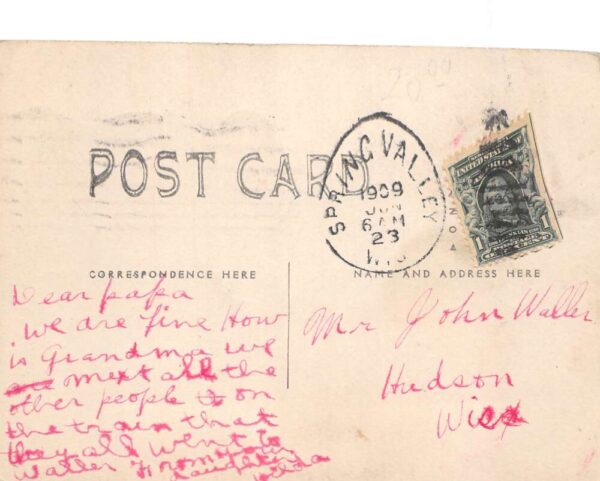 20.00
POST CARD
SPRING VALLEY
1909
JUN
6 AM
23
WIS
UNITED STATES OF
AMERICA
1
CORRESPONDENCE HERE
NAME AND ADDRESS HERE
Dear papa
we are fine How
is Grandma we
meet all the
other people on
the train that
they all went to
Waller From your
daughter
Mr John Waller
Hudson
Wisc